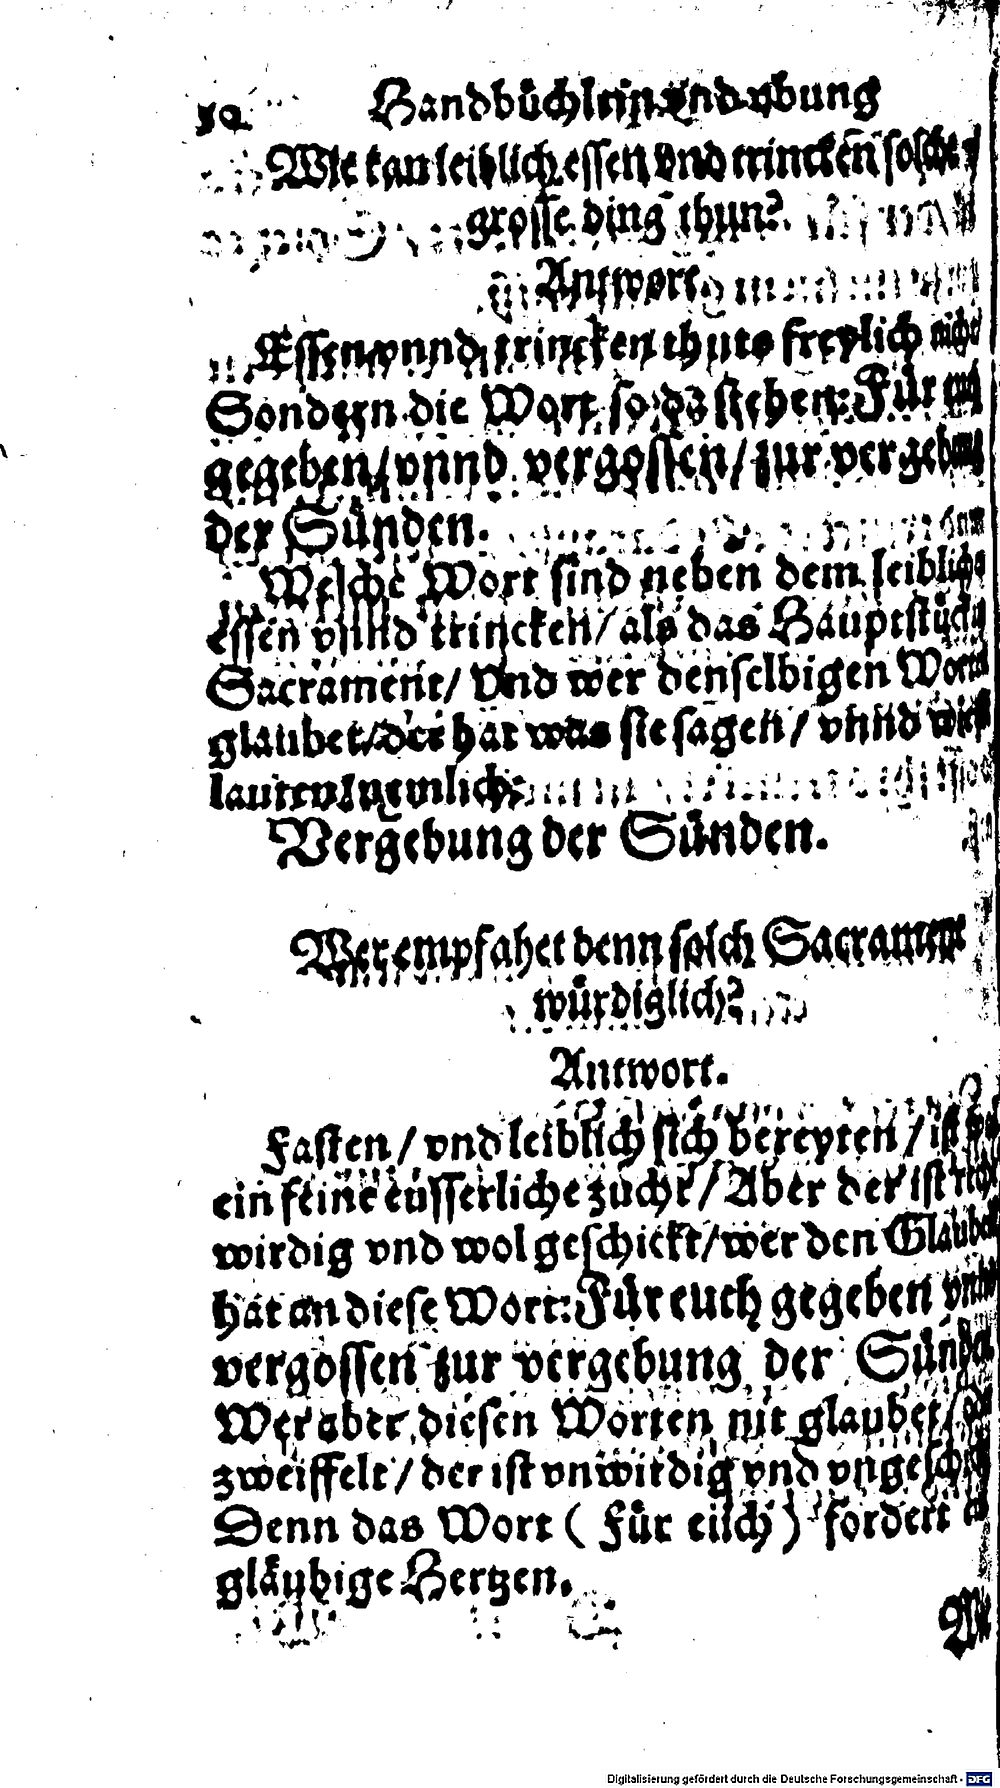 Handbüchlein vnd vbung
Wie kan leiblich essen vnd trincken solche
grosse ding thun?
Antwort.
Essen vnnd trincken thuts freylich nicht
Sondern die Wort so da stehen: Für euch
gegeben / vnnd vergossen / zur vergebung
der Sünden.
Welche Wort sind neben dem leibliche
essen vnnd trincken / als das Hauptstück
Sacrament / Vnd wer denselbigen Worten
glaubet / der hat was sie sagen / vnnd wie sie
lauten / nemlich:
Vergebung der Sünden.
Wer empfahet denn solch Sacrament
würdiglich?
Antwort.
Fasten / vnd leiblich sich bereyten / ist
ein feine eusserliche zucht / Aber der ist recht
wirdig vnd wol geschickt / wer den Glauben
hat an diese Wort: Für euch gegeben vnd
vergossen zur vergebung der Sünden
Wer aber diesen Worten nit glaubet /
zweiffelt / der ist vnwirdig vnd vngeschickt
Denn das Wort ( Für euch ) fordert
gläubige Hertzen.
Wie
Digitalisierung gefördert durch die Deutsche Forschungsgemeinschaft - DFG